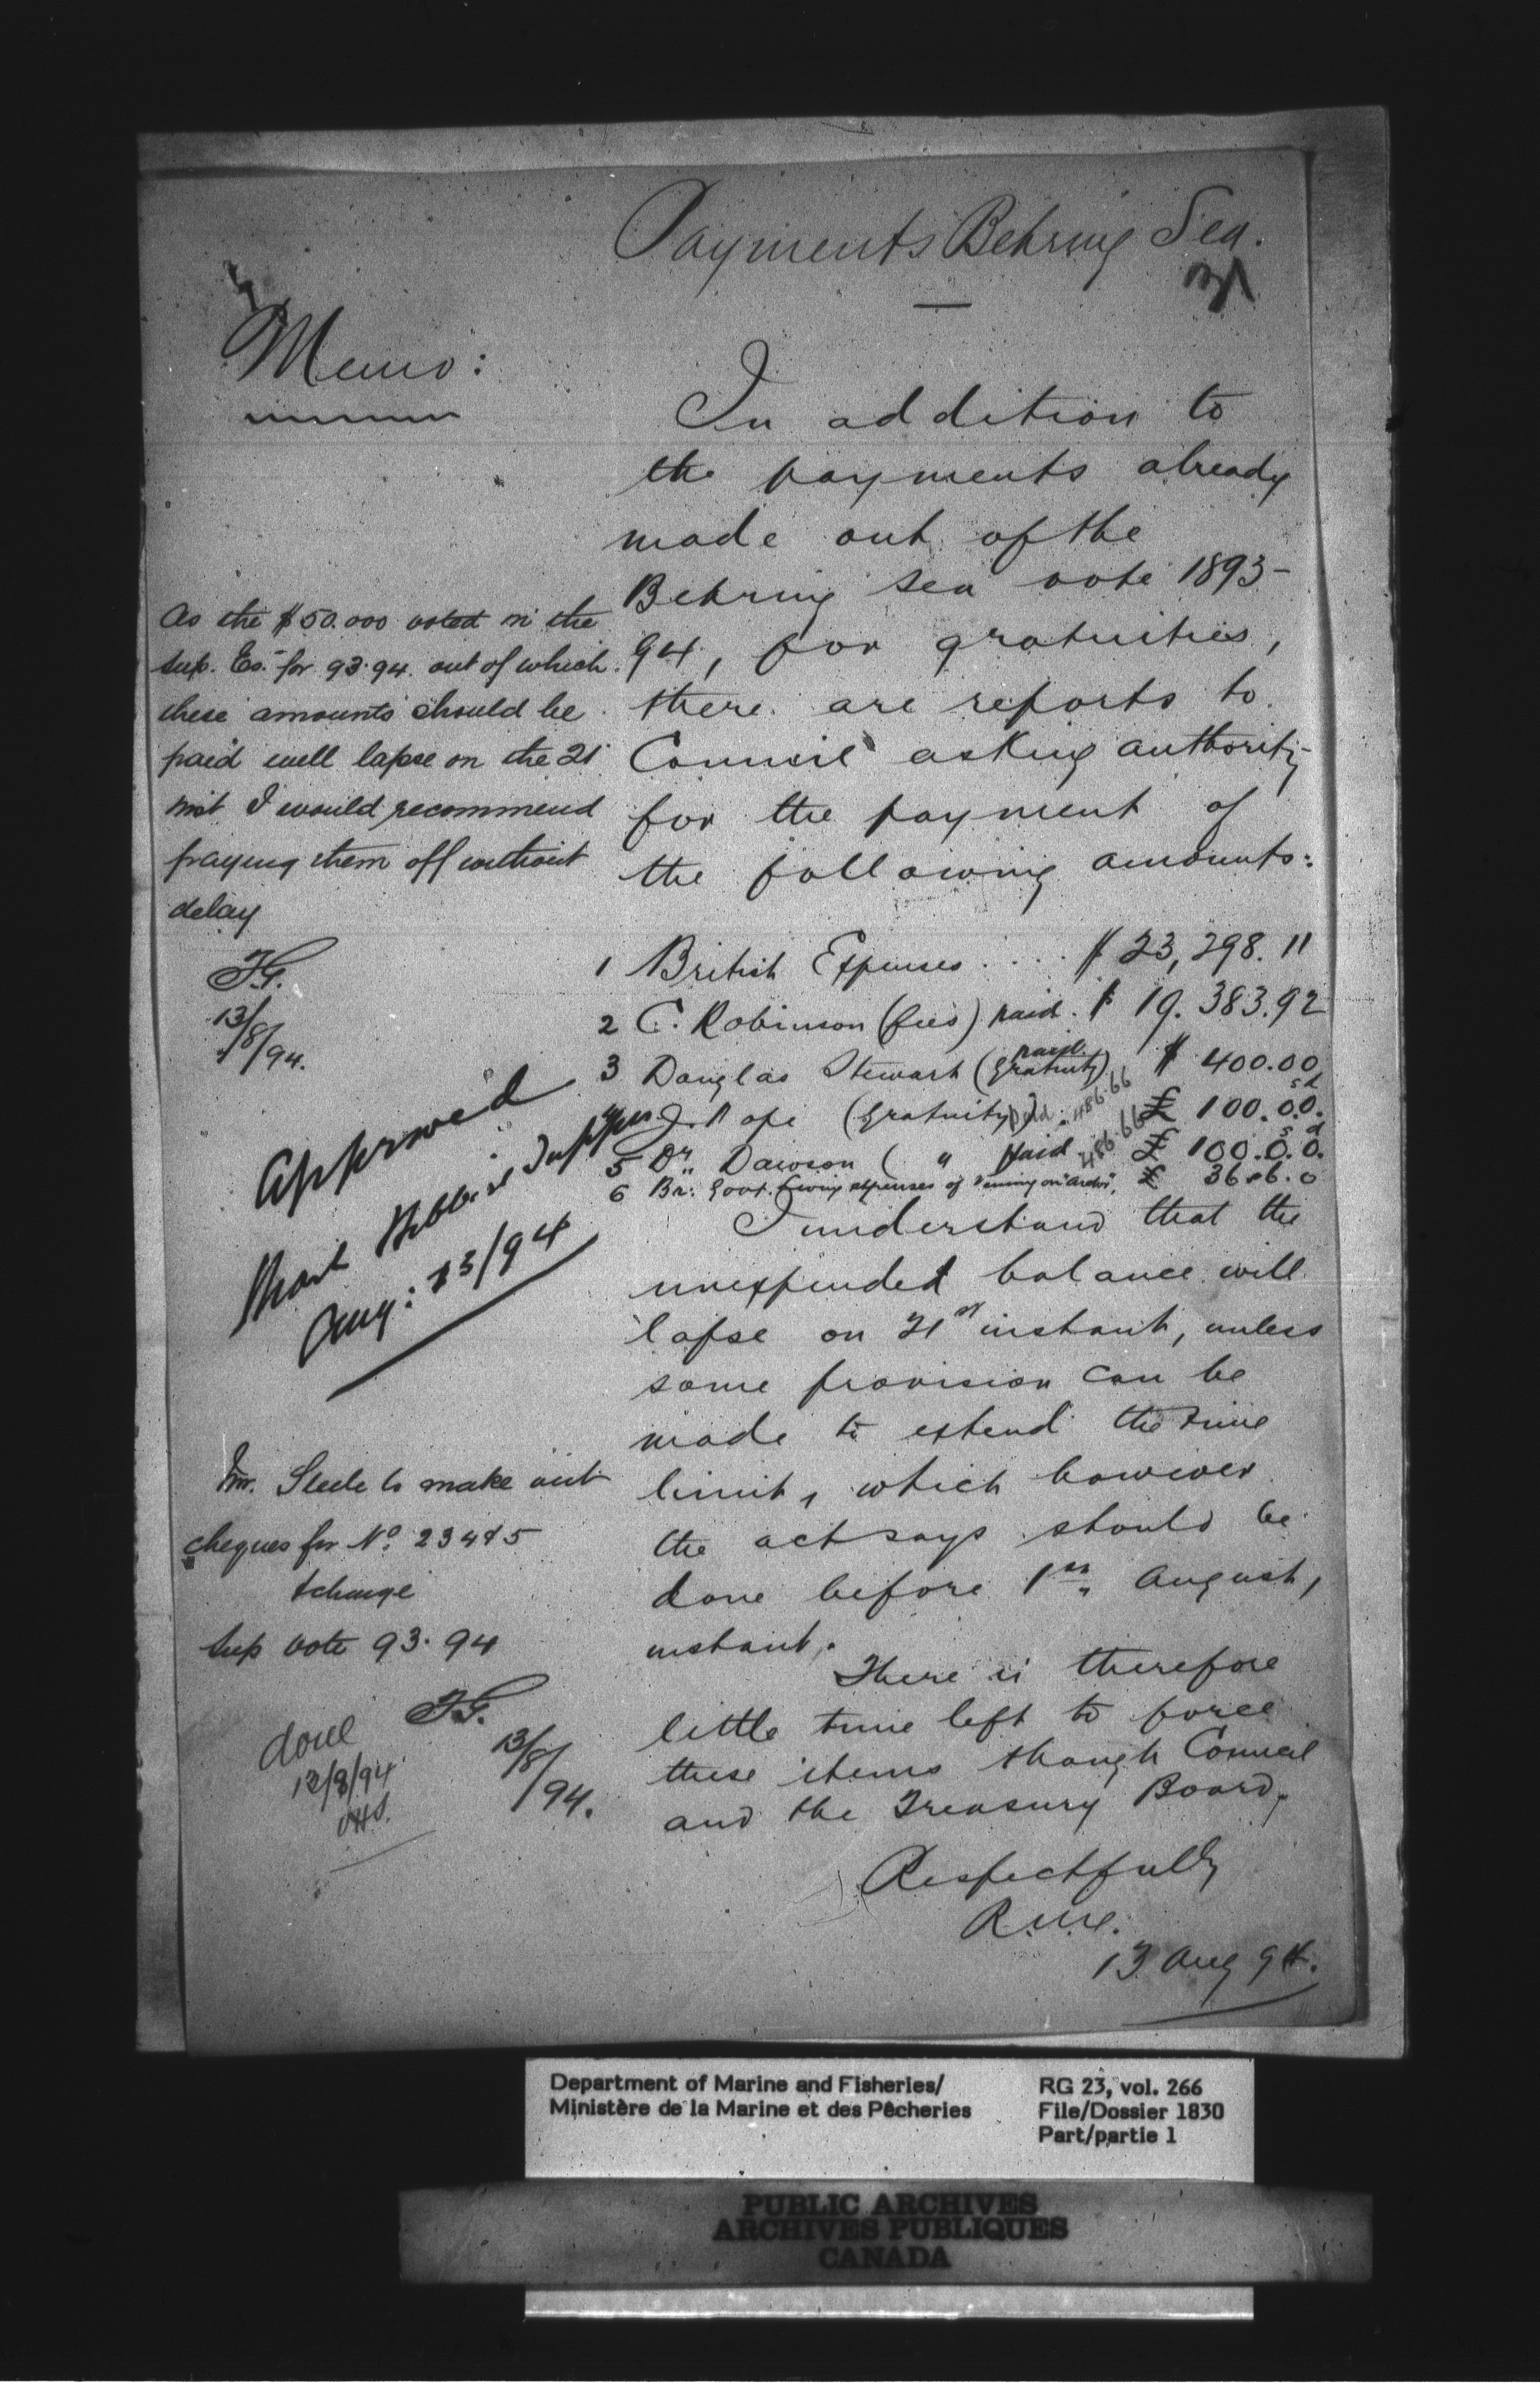 Payments Behring Sea.
Memo:
In addition to
the payments already
made out of the
Behring Sea vote 1893-
94, for gratuities,
there are reports to
Council asking authority
for the payment of
the following amounts:
1 British Expenses .... $ 23,298.11
2 C. Robinson (fees) paid. $ 19.383.92
3 Douglas Stewart (gratuity) paid $ 400.00
J. Pope (gratuity) paid. 486.66 £ 100.0.0. s d
5 Dr. Dawson ( " paid 486.66 £ 100.0.0. s d
6 Br: Govt. living expenses of Venning on £ 36.6.0
I understand that the
unexpended balance will
lapse on 21st instant, unless
some provision can be
made to extend the time
limit, which however
the act says should be
done before 1st August,
instant.
There is therefore
little time left to force
these items though Council
and the Treasury Board.
Respectfully
13 Aug 94.
As the $50.000 voted in the
Sup. Es. for 93.94. out of which
these amounts should be
paid well lapse on the 21
inst I would recommend
paying them off without
delay
13/8/94.
Approved
Aug: 13/94
Mr. Steele to make out
cheques for No. 2 3 4 & 5
& charge
Sup vote 93.94
13/8/94.
done
13/8/94
Department of Marine and Fisheries/
Ministère de la Marine et des Pêcheries
RG 23, vol. 266
File/Dossier 1830
Part/partie 1
PUBLIC ARCHIVES
ARCHIVES PUBLIQUES
CANADA